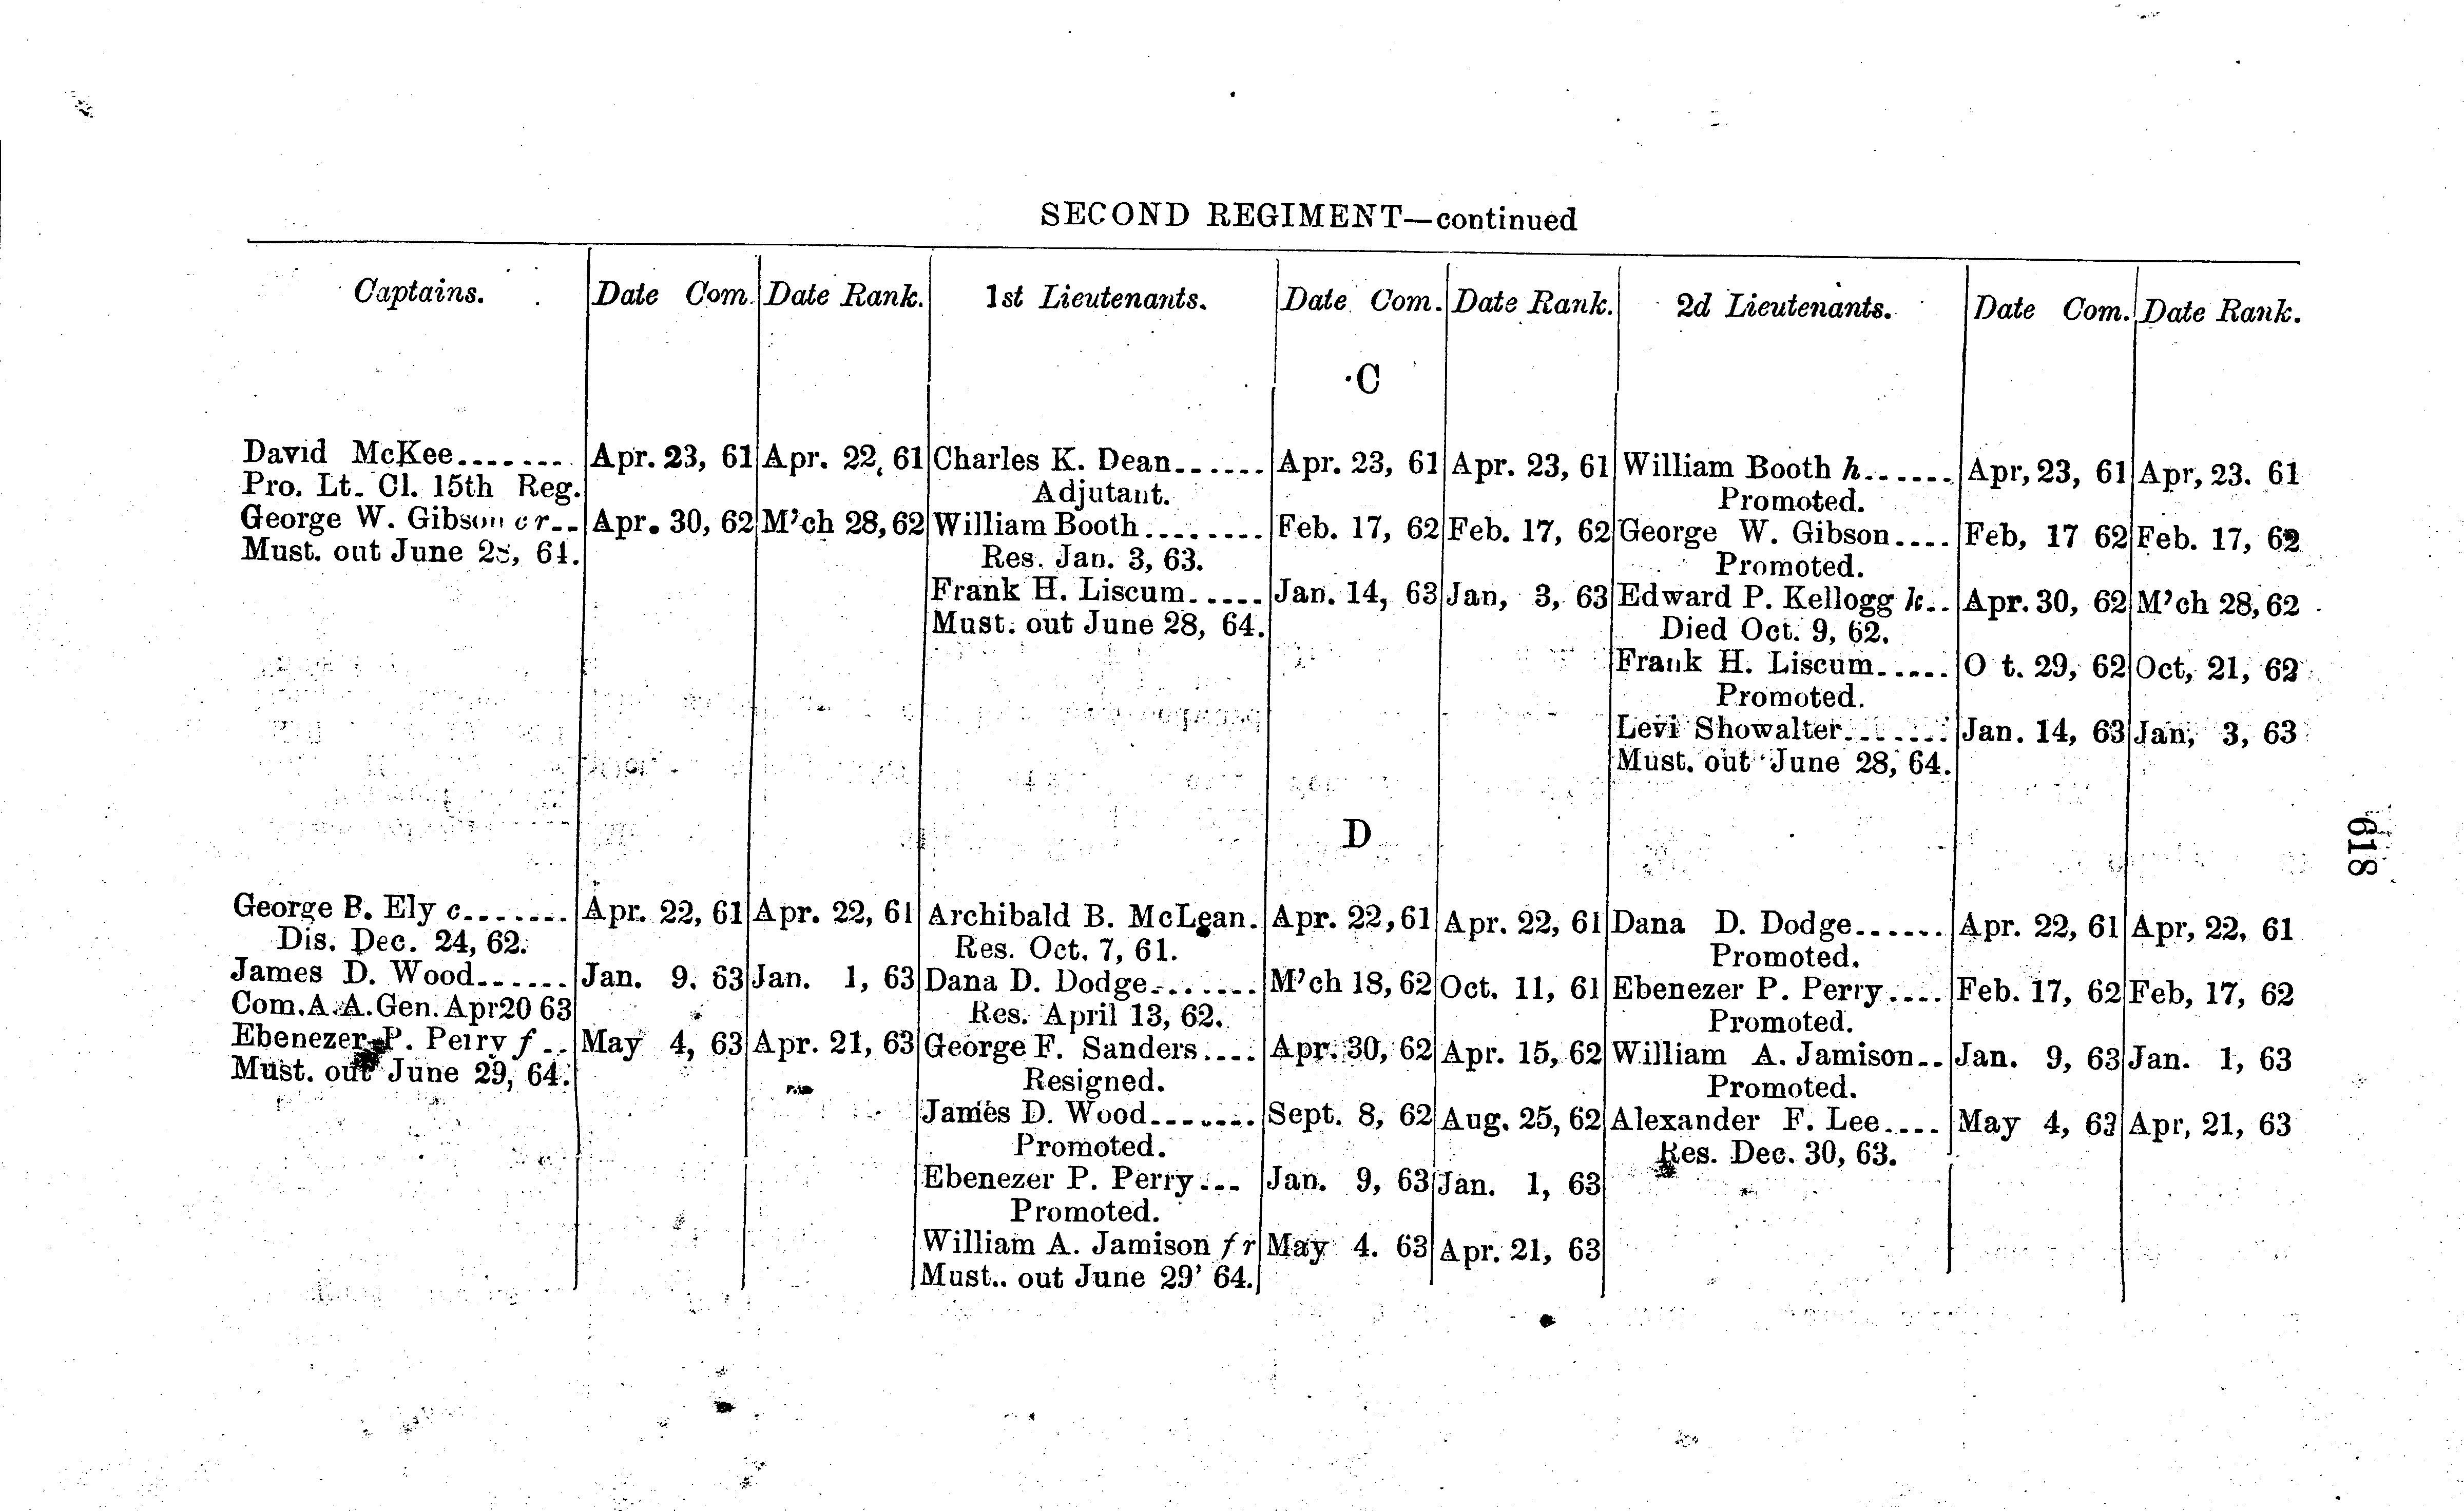 SECOND REGIMENT—continued
Captains. Date Com. Date Rank. 1st Lieutenants. Date Com. Date Rank. 2d Lieutenants. Date Com. Date Rank.
C
David McKee........ Apr. 23, 61 Apr. 22, 61 Charles K. Dean...... Apr. 23, 61 Apr. 23, 61 William Booth h...... Apr, 23, 61 Apr, 23. 61
Pro. Lt. Cl. 15th Reg. Adjutant. Promoted.
George W. Gibson c r.. Apr. 30, 62 M'ch 28, 62 William Booth........ Feb. 17, 62 Feb. 17, 62 George W. Gibson.... Feb, 17 62 Feb. 17, 62
Must. out June 28, 64. Res. Jan. 3, 63. Promoted.
Frank H. Liscum..... Jan. 14, 63 Jan, 3, 63 Edward P. Kellogg k.. Apr. 30, 62 M'ch 28, 62
Must. out June 28, 64. Died Oct. 9, 62.
Frank H. Liscum..... O t. 29, 62 Oct, 21, 62
Promoted.
Levi Showalter....... Jan. 14, 63 Jan, 3, 63
Must. out June 28, 64.
D
George B. Ely c....... Apr. 22, 61 Apr. 22, 61 Archibald B. McLean. Apr. 22, 61 Apr. 22, 61 Dana D. Dodge...... Apr. 22, 61 Apr, 22, 61
Dis. Dec. 24, 62. Res. Oct. 7, 61. Promoted.
James D. Wood...... Jan. 9. 63 Jan. 1, 63 Dana D. Dodge....... M'ch 18, 62 Oct. 11, 61 Ebenezer P. Perry.... Feb. 17, 62 Feb, 17, 62
Com. A. A. Gen. Apr 20 63 Res. April 13, 62. Promoted.
Ebenezer P. Perry f .. May 4, 63 Apr. 21, 63 George F. Sanders.... Apr. 30, 62 Apr. 15, 62 William A. Jamison.. Jan. 9, 63 Jan. 1, 63
Must. out June 29, 64. Resigned. Promoted.
James D. Wood....... Sept. 8, 62 Aug. 25, 62 Alexander F. Lee.... May 4, 63 Apr, 21, 63
Promoted. Res. Dec. 30, 63.
Ebenezer P. Perry... Jan. 9, 63 Jan. 1, 63
Promoted.
William A. Jamison f r May 4. 63 Apr. 21, 63
Must.. out June 29' 64.
618